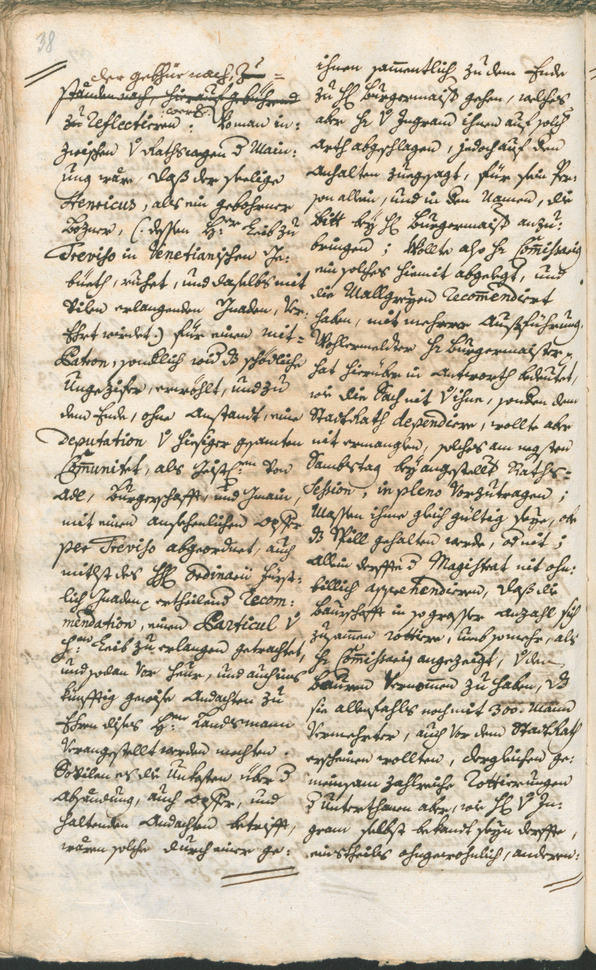 38
der gebhür nach, Zu
ständen nach, hierauf gebührend
zu reflectieren. Woman in=
zwischen V. Rathswegen d Main=
ung wäre, daß der seelige
Henricus, als ein gebohrner
Bozner, (: dessen H: Leib zu
Treviso in Venetianischen Ge=
bieth, ruhet, und daselbst mit
vilen erlangenden Gnaden, Ver=
Ehrt wirdet:) für einen mit=
Patron, sonklich wid d schödliche
Ungezifer, erwöhlt, und zu
dem Ende, ohne Anstandt, eine
Deputation V hiesiger gesamten
Comunitet, als von
Adl, Burgerschafft, und Gmain,
mit einen ansehenlichen Opffer
per Treviso abgeordnet, auch
mitlst des HH Ordinarii Fürst=
lich Gnaden ertheilend Recom=
mendation, einen Particul V
H: Leib zu erlangen getrachtet,
und sodan Vor heur, und auch ins
künfftig gewisse Andachten zu
Ehren dises H: Landsmann
Verangestellt werden mechten.
Sovilen es die Unkosten über d
Absendung, auch Opffer, und
haltenden Andachten betrifft,
wären solche durch einer ge=
ihnen sammentlich zu dem Ende
zu H: Burgermaist: gehen, welches
aber H: V Ingram ihnen auf solche
Arth abgeschlagen, jedoch auf den
Anhalten zuegesagt, für sein Per=
son allein, und in den Namen, die
Bitt bey H: Burgermaist: anzu=
bringen; Wollte also H: Commissarig
ein solches hiemit abgelegt, und
die Wallgängen Recommendiert
haben, mit mehrern Ausführung.
Wohlermelter H: Burgermaister
hat hierüber in Antworth bedeutet,
wie die Sach nit V ihme, sonden dem
StadtRath dependiere, wollte aber
nit ermanglen, solches am negsten
Sambstag bey angestellte Raths=
Session, in pleno Vorzutragen;
Massen ihme gleich gültig seye, ob
d Spill gehalten werde, od nit;
Allein derffte d Magistrat nit ohn=
billich apprehendieren, daß die
Baurschafft in so grosser Anzahl sich
zusamen rottiere, umb so mehr, als
H: Commissarig angezeigt, V den
Bauren Vernommen zu haben, d
sie allenfahls noch mit 300: Mann
Vermehrter, auch Vor dem StadtRath
erscheinen wollten, dergleichen ge=
meinsam zahlreiche Rottierungen
d Unterthanen aber, wie H: V In=
gram selbst bekandt seyn derffte,
eins theils ohngewohnlich, anderen=